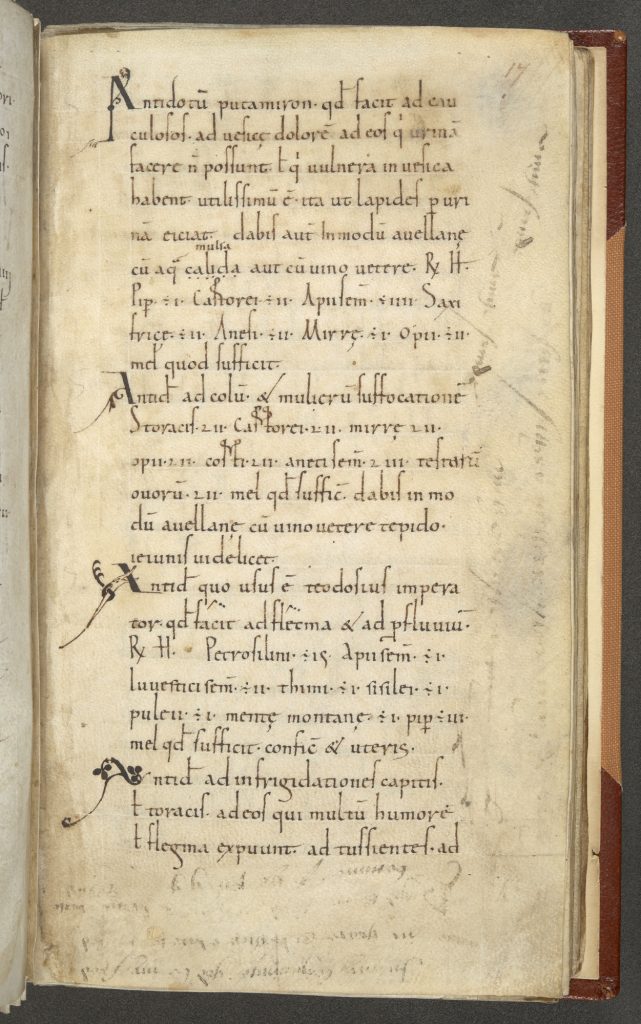 17
Antidotū putamiron· qđ facit ad cau
culosos· ad vesicę dolorē ad eos q' urinā
facere n̄ possunt· ƚ q' vulnera in vesica
habent utilissimū ē· ita ut lapides p uri
nā eiciat· dabis aut̄ In modū avellanę
mulsa
cū aq̄ calida aut cū vino vetere· R̨ H̵·
Pip̄· ÷ı· Castorei· ÷ıı· Apii sem̄· ÷ıııı· Saxi
fricę· ÷ıı· Anesi· ÷ıı· Mirrę· ÷ı· Opii· ÷ıı·
mel quod sufficit·
Antiđ ad colū· & mulierū suffocationē
Storacis· 2ıı· Castorei· 2ıı· mirrę 2ıı·
opii· 2ıı· costi· 2ıı· aneti sem̄· 2ııı· testarū
ovorū· 2ıı· mel qđ suffic̄· dabis in mo
dū avellanę cū vino vetere tepido·
ieiunis videlicet·
Antiđ quo usus ē teodosius impera
tor· qđ facit ad flegma & ad p̄fluviū·
R̨ H̵· Petrosilini· ÷ıs· Apii sem̄· ÷ı·
luvestici sem̄· ÷ıı· thimi· ÷ı· sisilei· ÷ı·
puleii· ÷ı· mentę montanę· ÷ı· pip̄ ÷vı·
mel qđ sufficit· confic̄ & uteris·
Antiđ ad infrigidationes capitis·
ƚ toracis· ad eos qui multū humorē
ƚ flegma expuunt· ad tussientes· ad